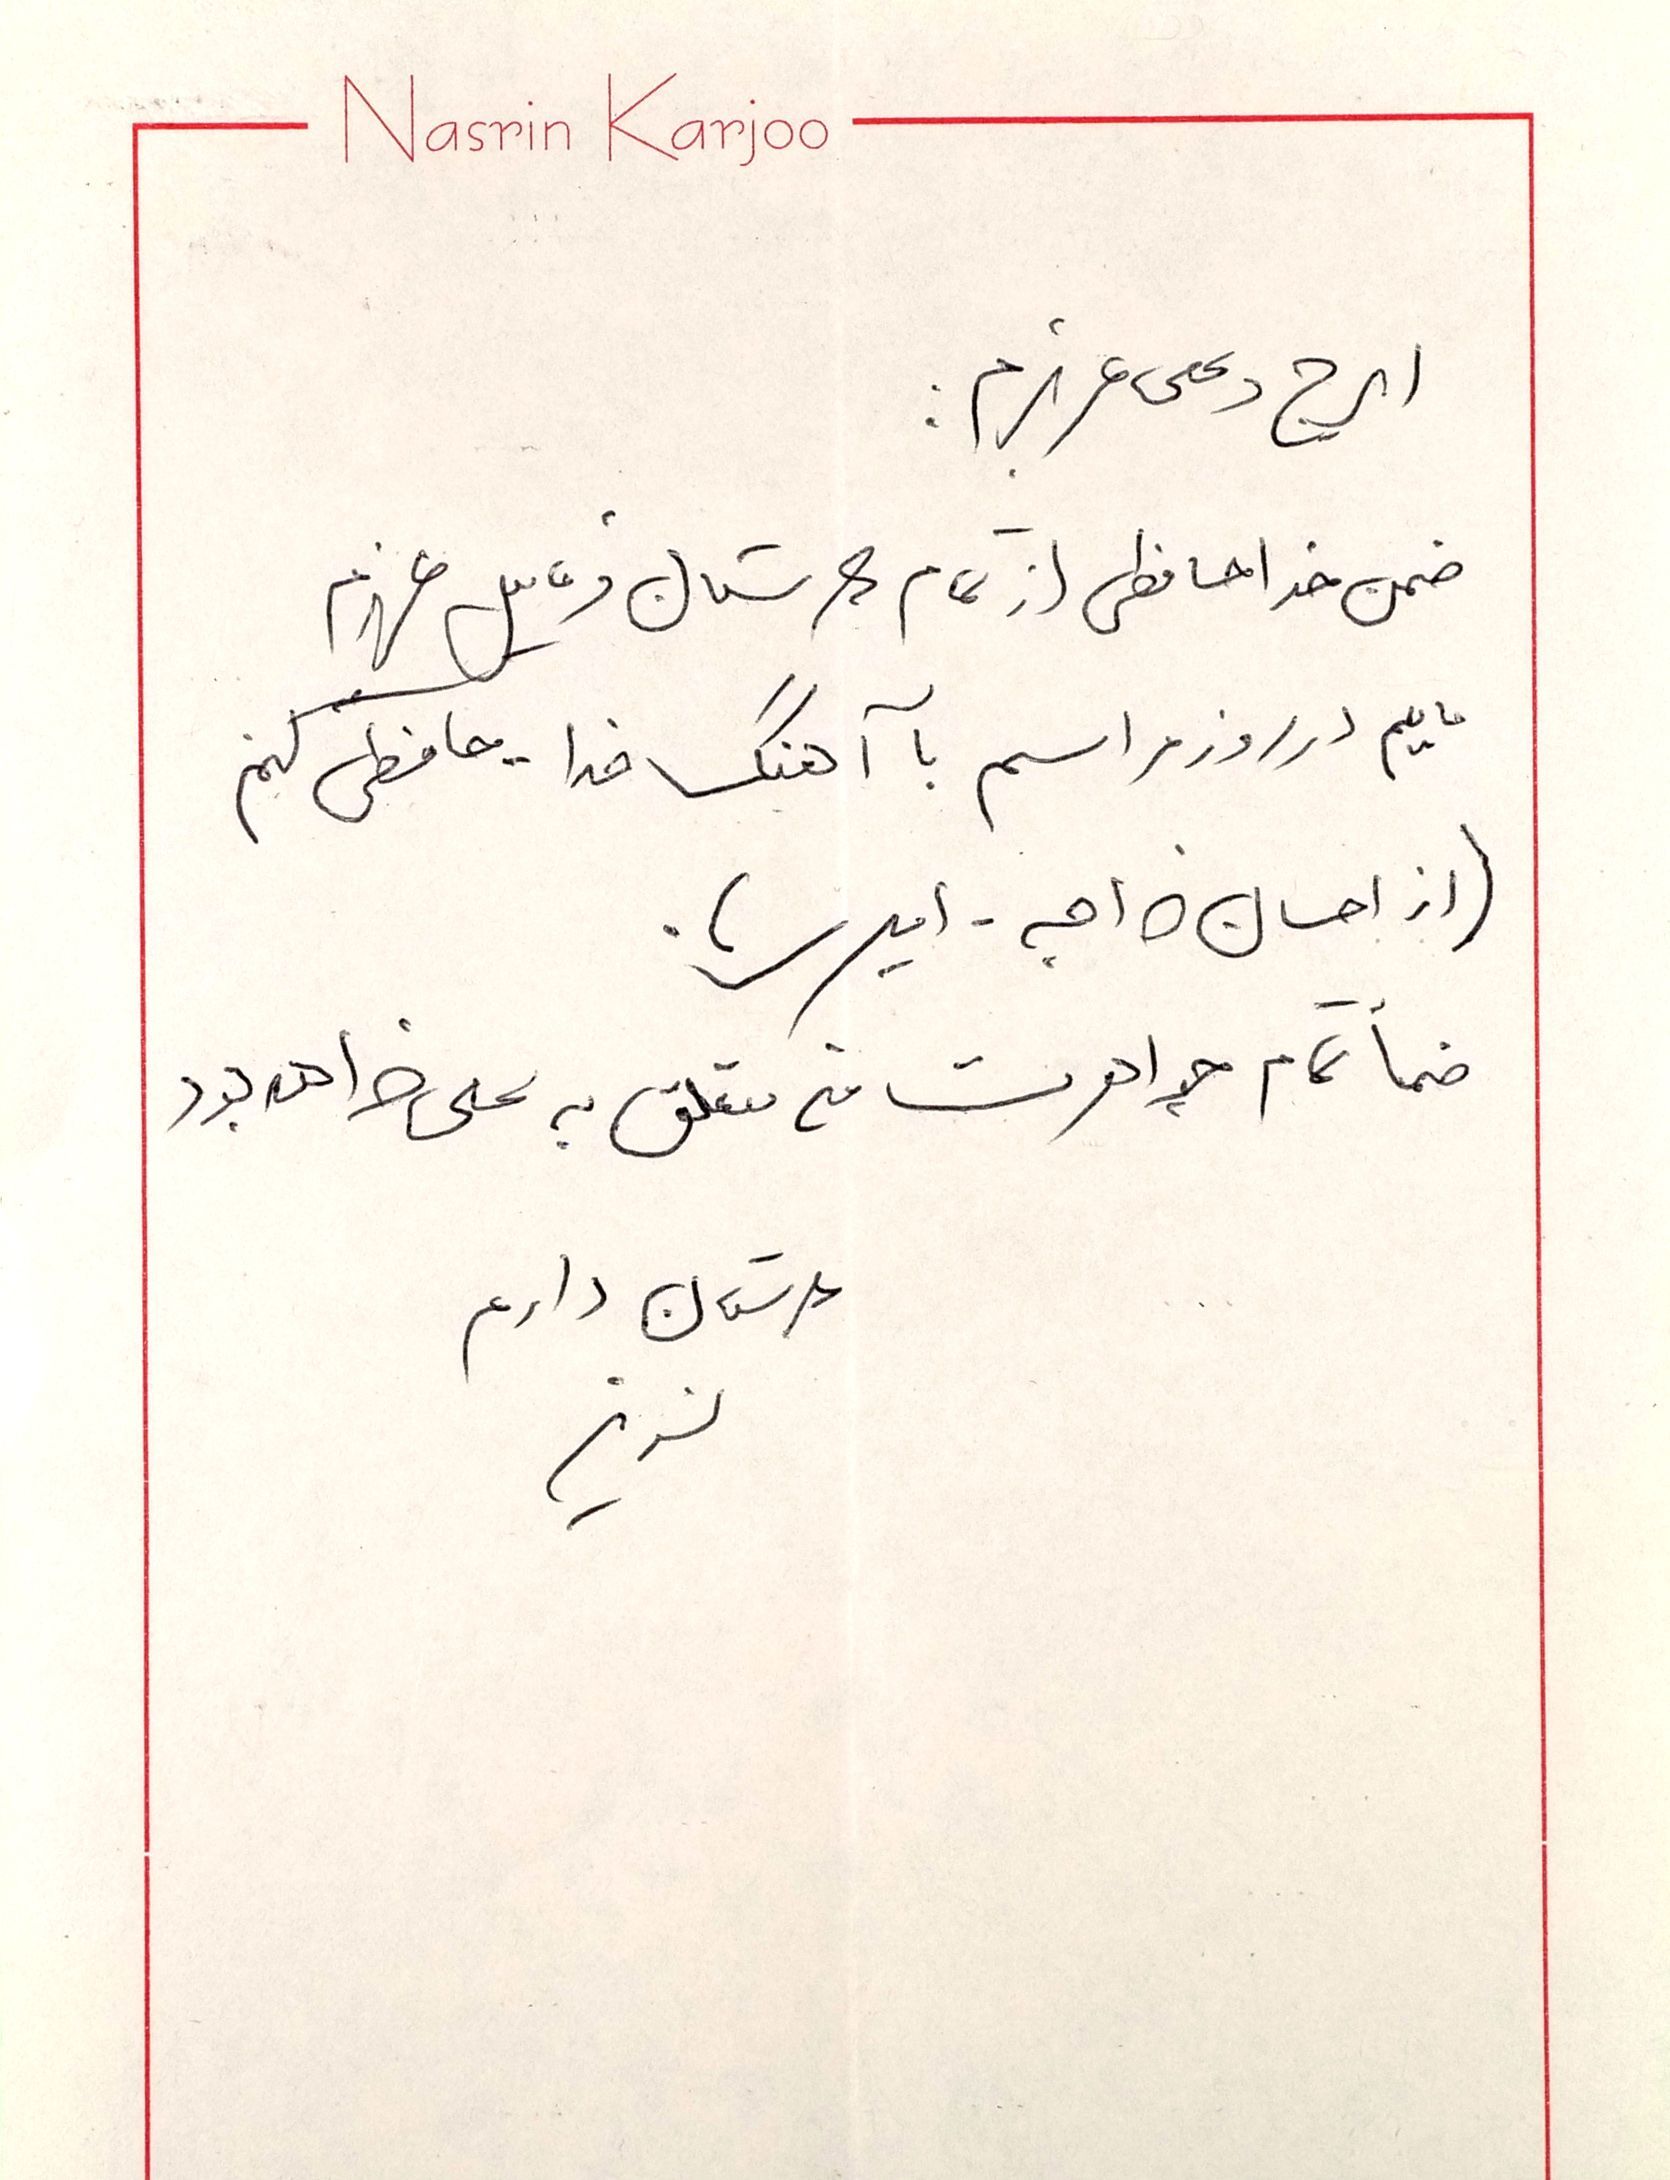 Nasrin Karjoo
ایرج و علی عزیزم :
ضمن خداحافظی از تمام دوستان و فامیل عزیزم
مایلم در روز مراسم با آهنگ خدا - حافظی کنم
(از احسان خواجه - امیری).
ضمناً تمام جواهرت من متعلق به علی خواهد بود
دوستتان دارم
نسرین